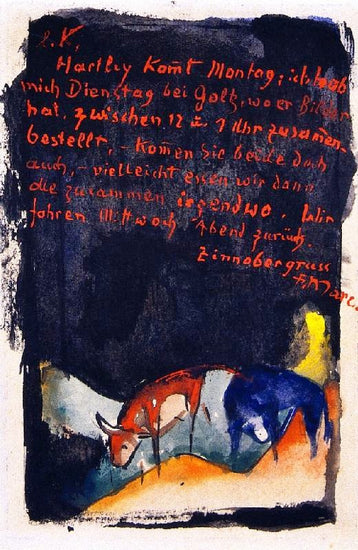 L. K,
Hartley Komt Montag; ich hab
mich Dienstag bei Goltz, wo er Bilder
hat, zwischen 12 u. 1 Uhr zusamen-
bestellt, - Komen Sie beide doch
auch, - vielleicht essen wir dann
alle zusammen irgendwo. Wir
fahren Mittwoch Abend zurück.
Zinnobergruss
F. Marc.